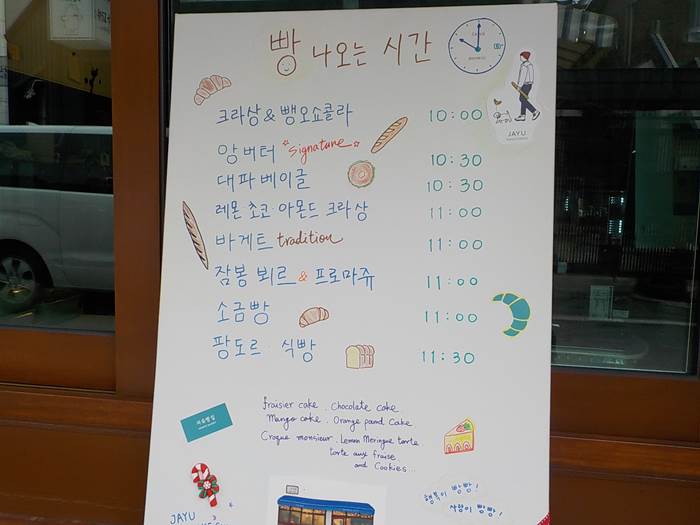 빵 나오는 시간
크라상 & 뺑오쇼콜라 10:00
앙버터 signature 10:30
대파베이글 10:30
레몬 쵸코 아몬드 크라상 11:00
바게트 tradition 11:00
잠봉 뵈르 & 프로마쥬 11:00
소금빵 11:00
팡도르 식빵 11:30
JAYU
fraisier cake . Chocolate cake
Mango cake . Orange pand Cake
Croque monsieur . Lemon Meringue tarte
tarte aux fraise
and Cookies...
행복이 빵빵!
사랑이 빵빵!
JAYU